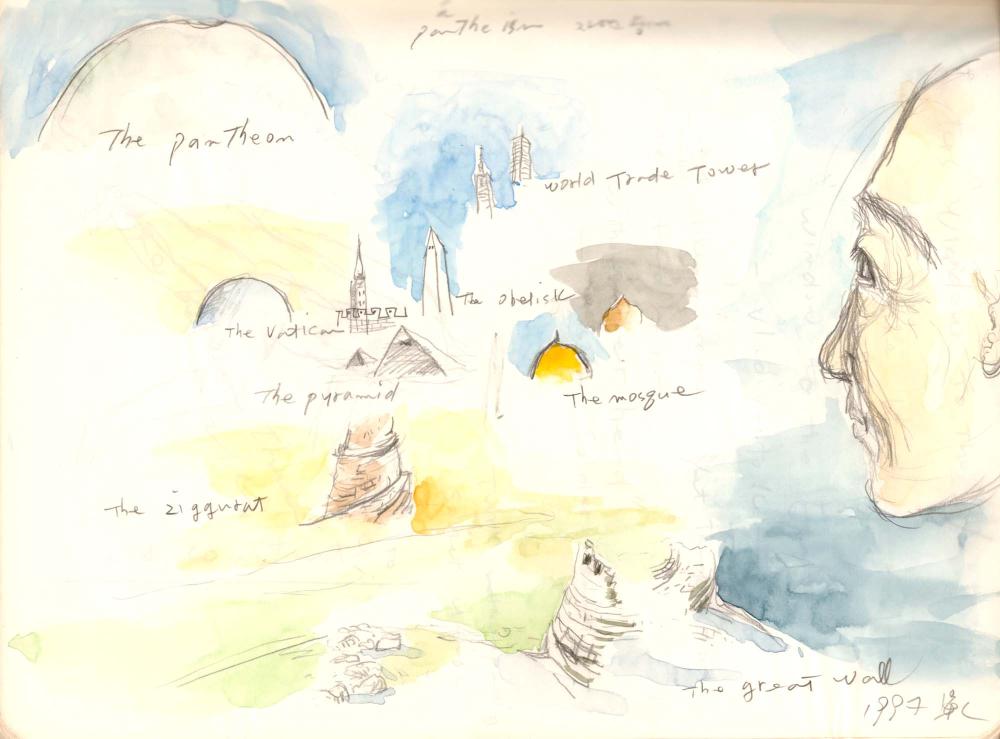 pantheism
The pantheon
world Trade Tower
The obelisk
The Vatican
The pyramid
The mosque
The ziggurat
The great wall
1997